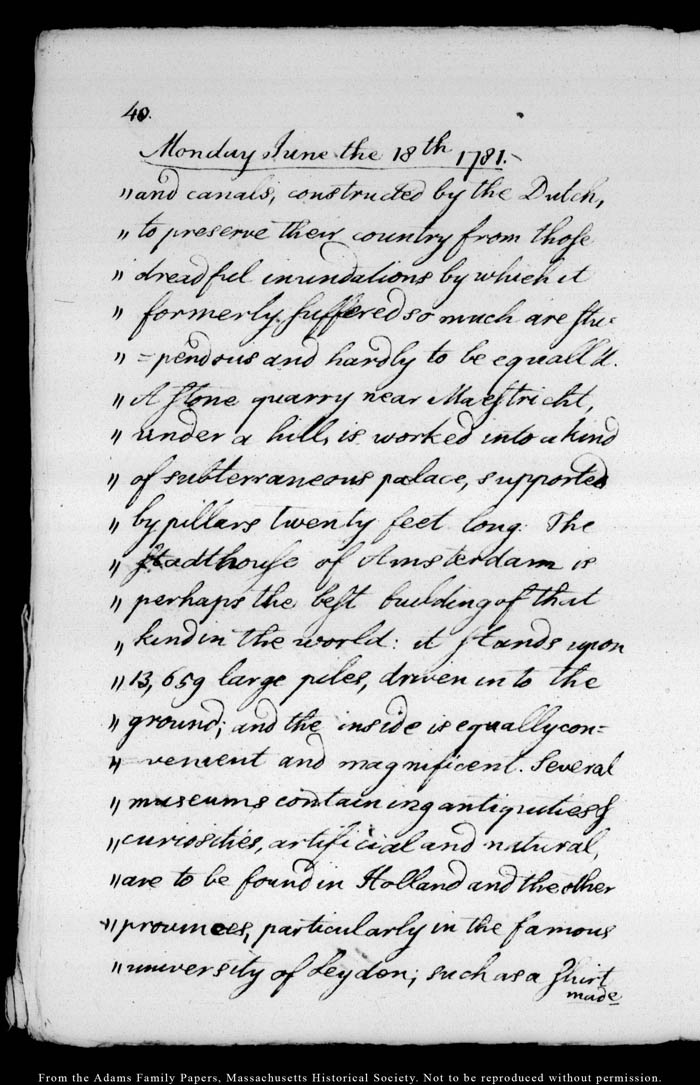 40.
Monday June the 18th 1781.-
" and canals, constructed by the Dutch,
" to preserve their country from those
" dreadful inundations by which it
" formerly suffered so much are stu=
" =pendous and hardly to be equall'd.
" A stone quarry near Maestricht,
" under a hill, is worked into a kind
" of subterraneous palace, supported
" by pillars twenty feet long. The
" Stadthouse of Amsterdam is
" perhaps the best building of that
" kind in the world: it stands upon
" 13,659 large piles, driven into the
" ground; and the inside is equally con=
" venient and magnificent. Several
" museums containing antiquities &
" curiosities, artificial and natural,
" are to be found in Holland and the other
" provinces, particularly in the famous
" university of Leyden; such as a shirt
made
From the Adams Family Papers, Massachusetts Historical Society. Not to be reproduced without permission.